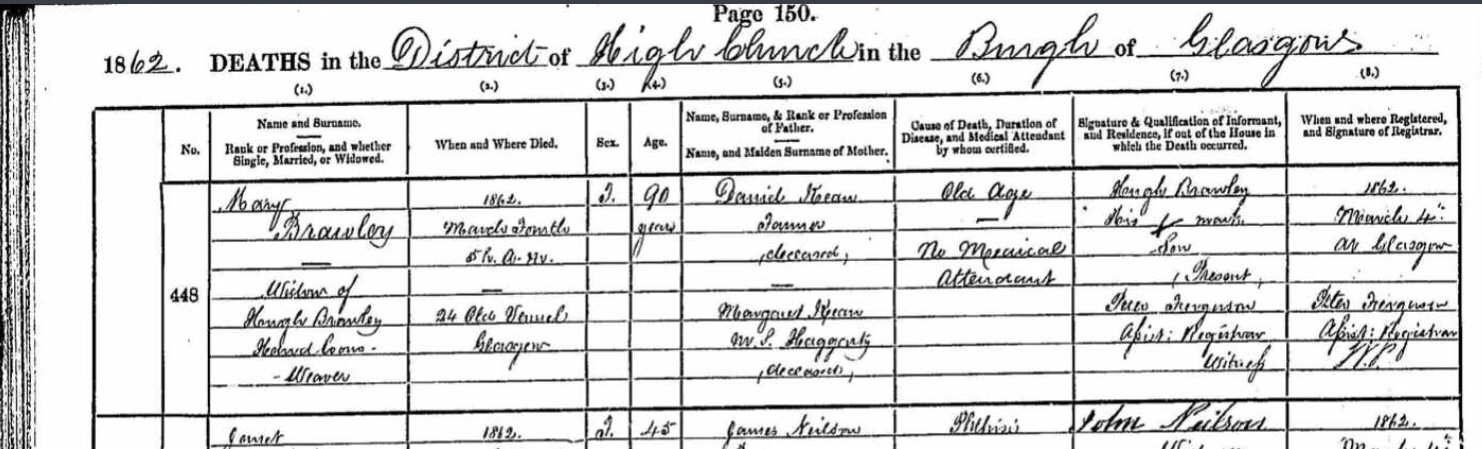 Page 150.
1862. DEATHS in the District of High Church in the Burgh of Glasgow
(1.) (2.) (3.) (4.) (5.) (6.) (7.) (8.)
No.
Name and Surname.
Rank or Profession, and whether
Single, Married, or Widowed.
When and Where Died.
Sex.
Age.
Name, Surname, & Rank or Profession
of Father.
Name, and Maiden Surname of Mother.
Cause of Death, Duration of
Disease, and Medical Attendant
by whom certified.
Signature & Qualification of Informant,
and Residence, if out of the House in
which the Death occurred.
When and where Registered,
and Signature of Registrar.
448
Mary
Brawley
Widow of
Hough Brawley
Hand Loom
- Weaver
1862.
March Fourth
5h. A. M.
24 Old Vennel
Glasgow
F.
90
years
Daniel Kean
Farmer
(deceased)
Margaret Kean
M. S. Haggerty
(deceased)
Old Age
No Medical
Attendant
Hough Brawley
His x mark
Son
(Present)
Peter Ferguson
Assist: Registrar
Witness
1862.
March 4th
At Glasgow
Peter Ferguson
Assist: Registrar
Janet
1862.
F.
45
James Neilson
Phthisis
John Neilson
1862.